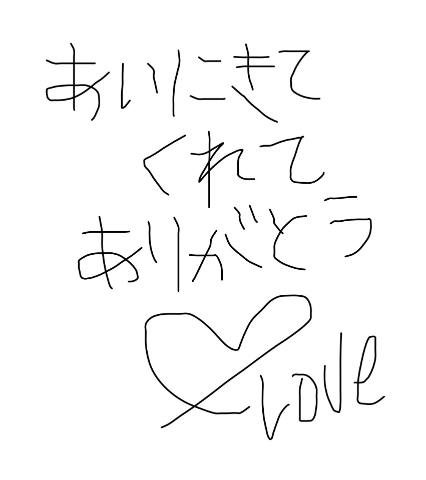 あいにきて
くれて
ありがとう
LOVE